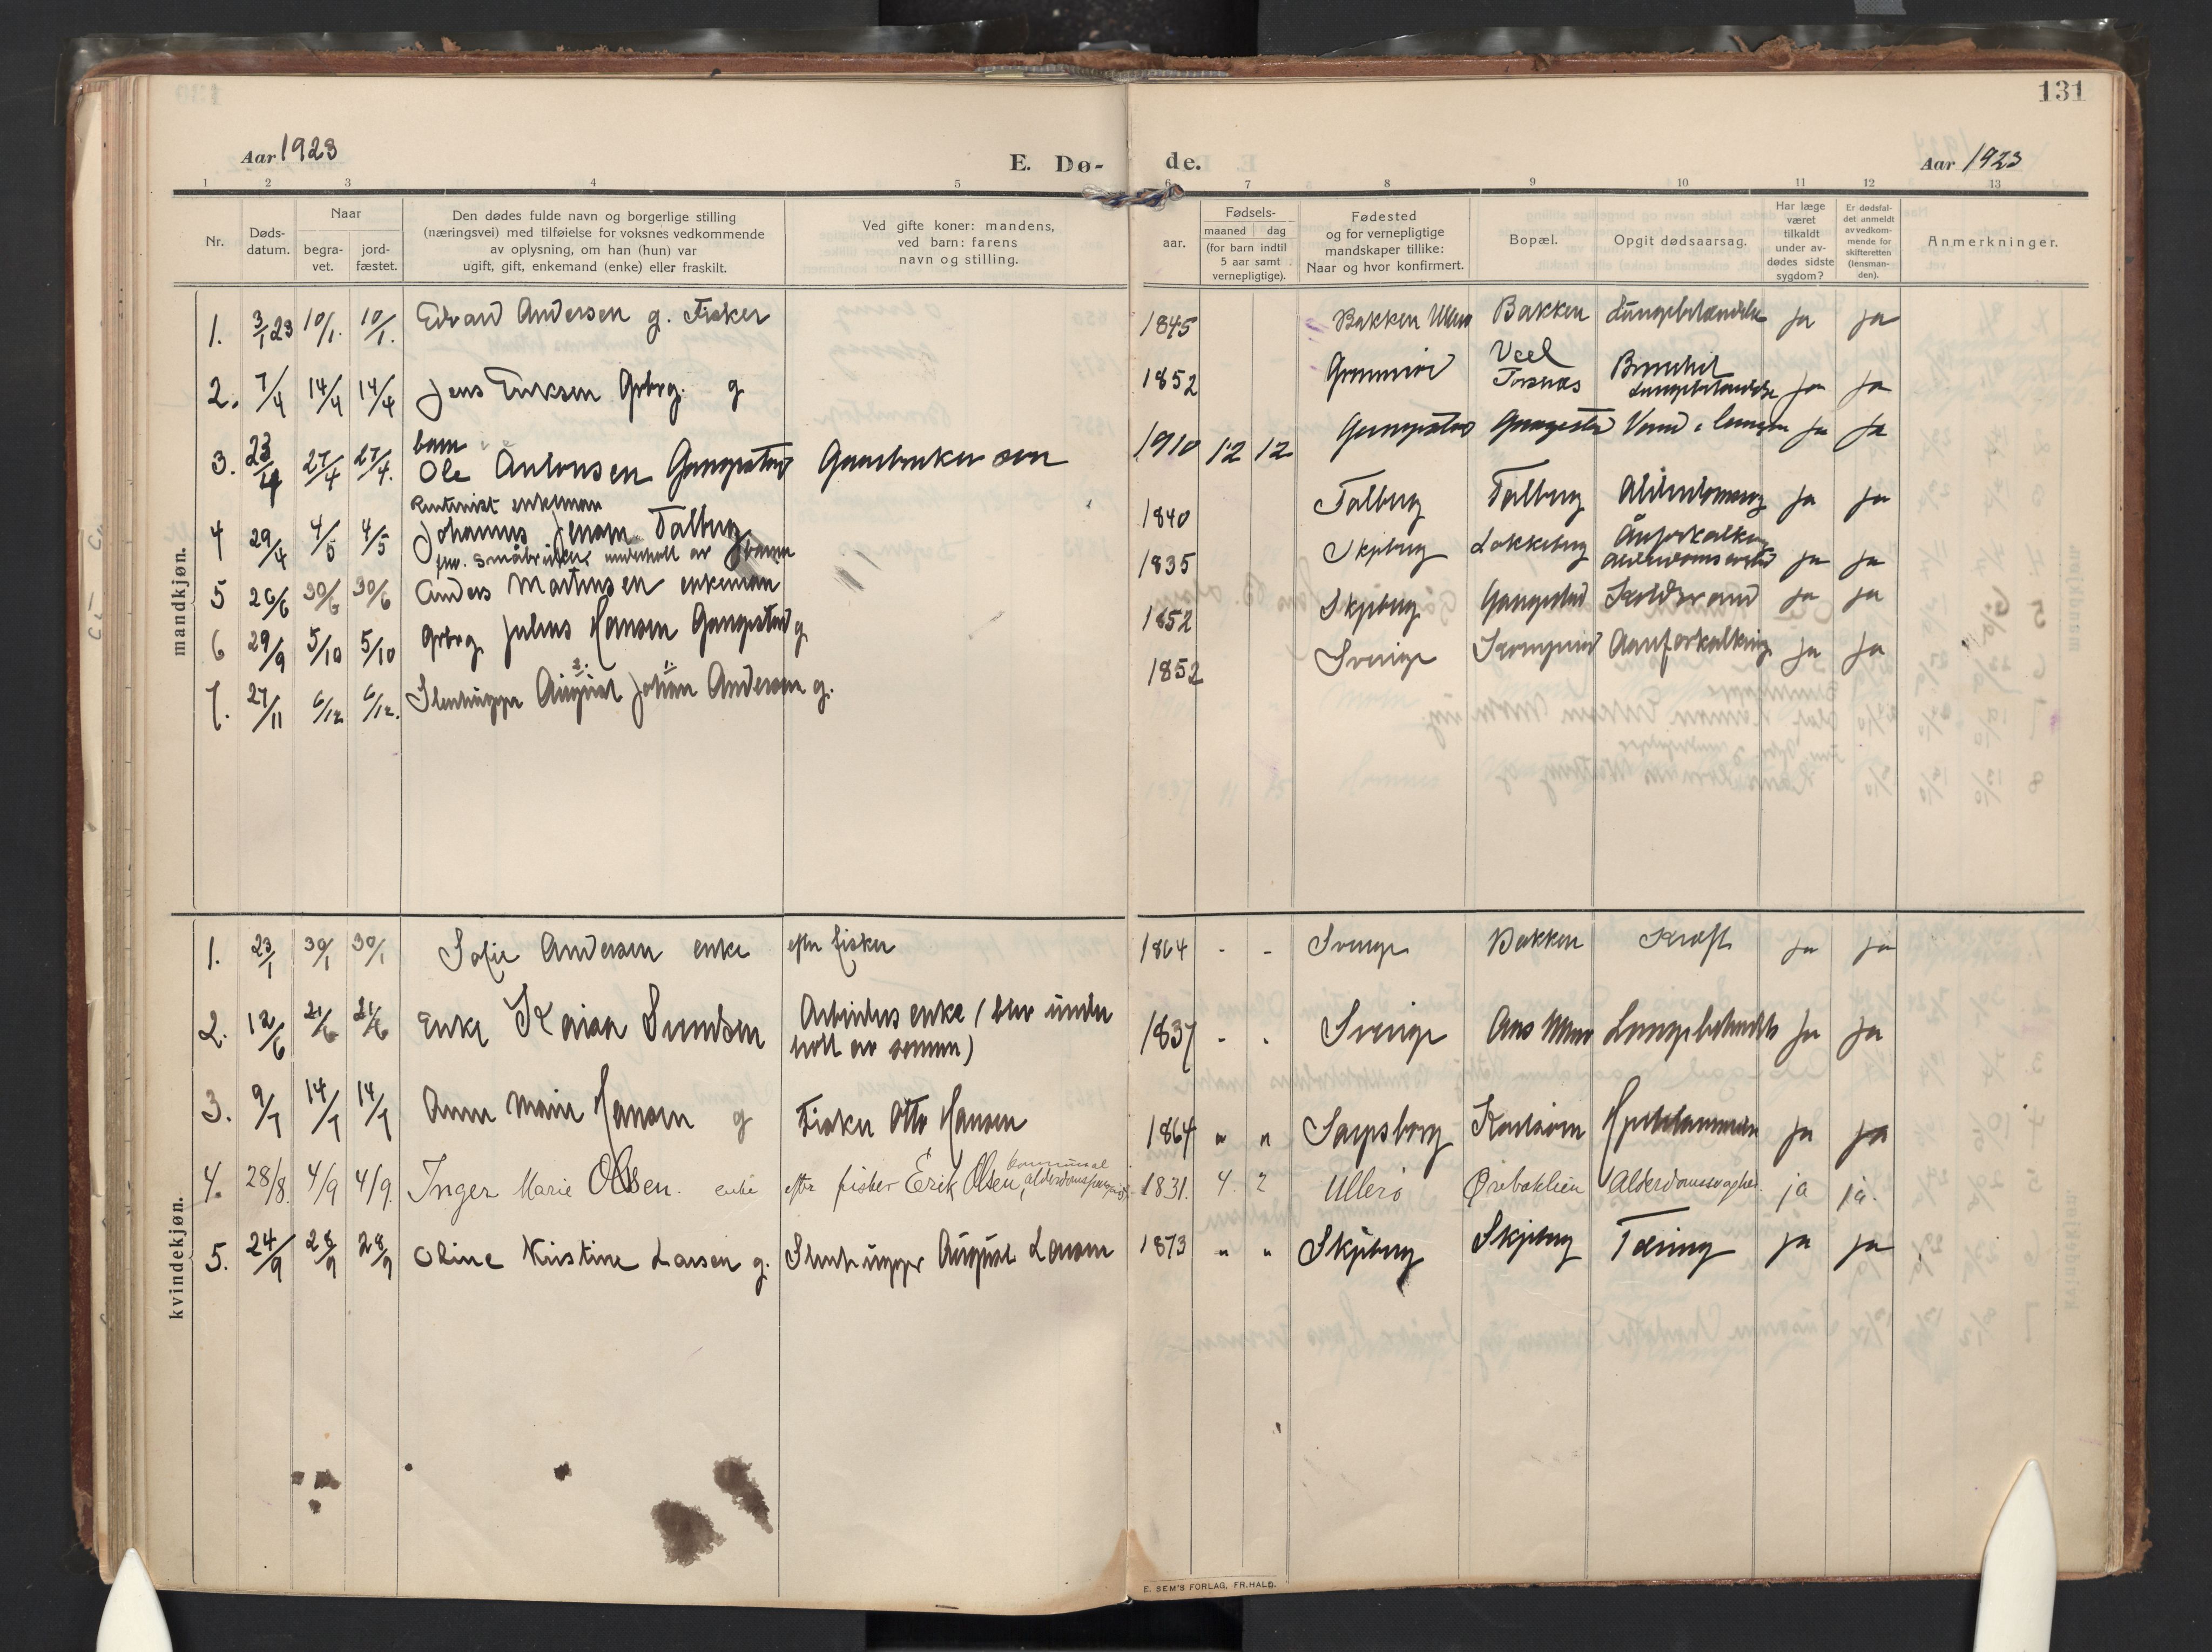 131
Aar 1923
E. Dø-
de.
Aar 1923
1 2 3 4 5 6 7 8 9 10 11 12 13
Nr.
Døds-
datum.
Naar
begra-
vet.
jord-
fæstet.
Den dødes fulde navn og borgerlige stilling
(næringsvei) med tilføielse for voksnes vedkommende
av oplysning, om han (hun) var
ugift, gift, enkemand (enke) eller fraskilt.
Ved gifte koner: mandens,
ved barn: farens
navn og stilling.
aar.
Fødsels-
maaned dag
(for barn indtil
5 aar samt
vernepligtige).
Fødested
og for vernepligtige
mandskaper tillike:
Naar og hvor konfirmert.
Bopæl.
Opgit dødsaarsag.
Har læge
været
tilkaldt
under av-
dødes sidste
sygdom?
Er dødsfal-
det anmeldt
av vedkom-
mende for
skifteretten
(lensman-
den).
Anmerkninger.
mandkjøn.
1. 3/1 23 10/1. 10/1. Edvard Andersen g. Fisker 1845 Bakken Ullerø Bakken Lungebetændelse ja ja
2. 7/4 14/4 14/4 Jens Eriksen Grbrg. g 1852 Torsnæs Lungebetændelse ja ja
barn
3. 23/4 27/4 27/4. Ole Antonsen Gangestad Gaardbruker søn 1910 12 12 Gangestad Gangestad ja ja
enkeman
4 29/4 4/5 4/5 Johannes Jensen Talberg 1840 Talberg Talberg ja ja
underholt av
5 26/6 30/6 30/6 Anders Martinsen enkeman 1835 Skjeberg Lokkeberg ja ja
6 29/9 5/10 5/10 Grbrg Julius Hansen Gangestad g 1852 Skjeberg Gangestad Koldbrand ja ja
7. 27/11 6/12 6/12. Stenhugger August Johan Andersen g. 1852 Sverige Aareforkalkning ja ja
kvindekjøn.
1. 23/1 30/1 30/1 Sofie Andersen enke efter fisker 1864 - - Sverige Bakken Kræft ja ja
2. 12/6 21/6 21/6 Enke Karian Svendsen Arbeiders enke (blev under
holt av sønnen) 1837 - - Sverige Lungebetændelse ja ja
3. 9/7 14/7 14/7 Anne Marie Hansen g Fisker Otto Hansen 1864 " " Sarpsborg ja ja
4. 28/8. 4/9 4/9. Inger Marie Olsen. enke efter fisker Erik Olsen, 1831. 4. 2 Ullerø Ørebakken Alderdomssvaghet. ja ja.
5. 24/9 28/9 28/9 Oline Kristine Larsen g. Stenhugger August Larsen 1873 " " Skjeberg Skjeberg Tæring ja ja
E. SEM'S FORLAG, FR.HALD.